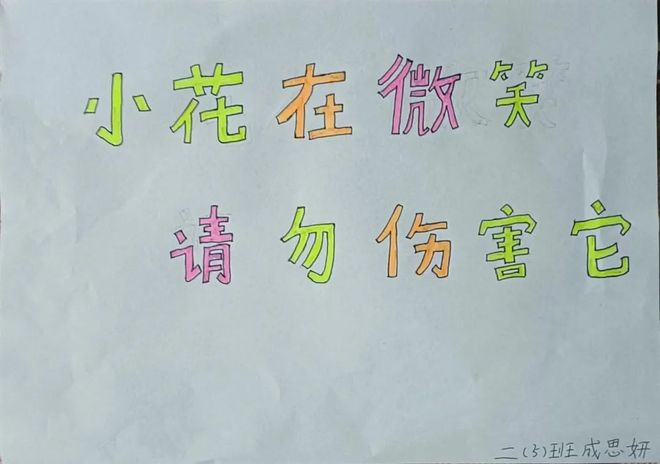 小花在微笑
请勿伤害它
二(5)班成思妍